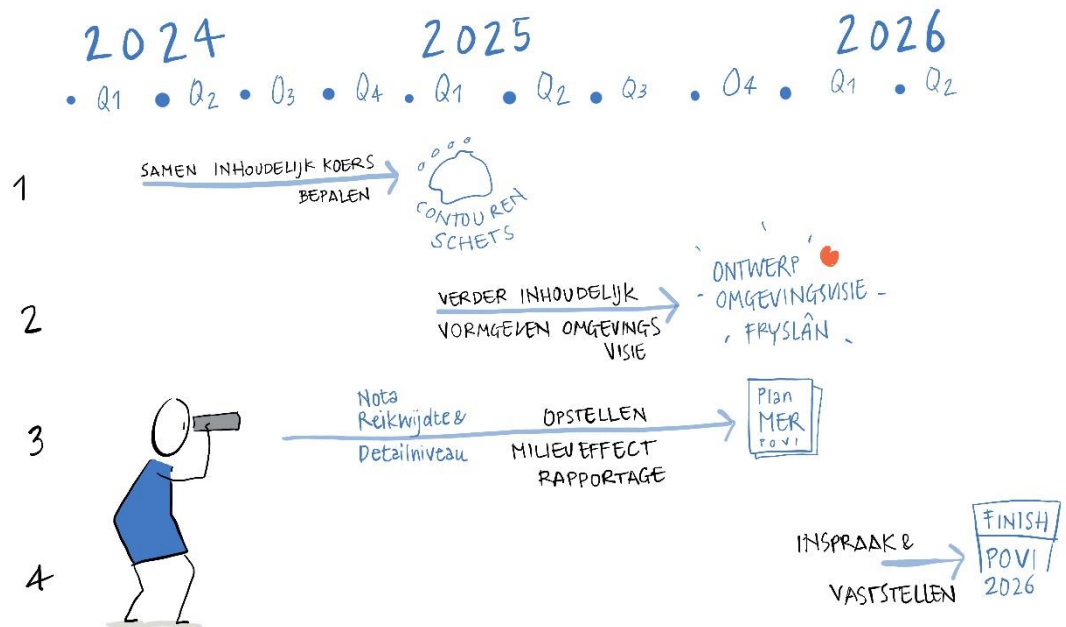 2024 2025 2026
• Q1 • Q2 • Q3 • Q4 • Q1 • Q2 • Q3 • Q4 • Q1 • Q2
1
SAMEN INHOUDELIJK KOERS
BEPALEN
CONTOUREN
SCHETS
2
VERDER INHOUDELIJK
VORMGEVEN OMGEVINGS
VISIE
ONTWERP
- OMGEVINGSVISIE -
FRYSLÂN
3
Nota
Reikwijdte &
Detailniveau
OPSTELLEN
MILIEUEFFECT
RAPPORTAGE
Plan
MER
POVI
4
INSPRAAK &
VASTSTELLEN
FINISH
POVI
2026